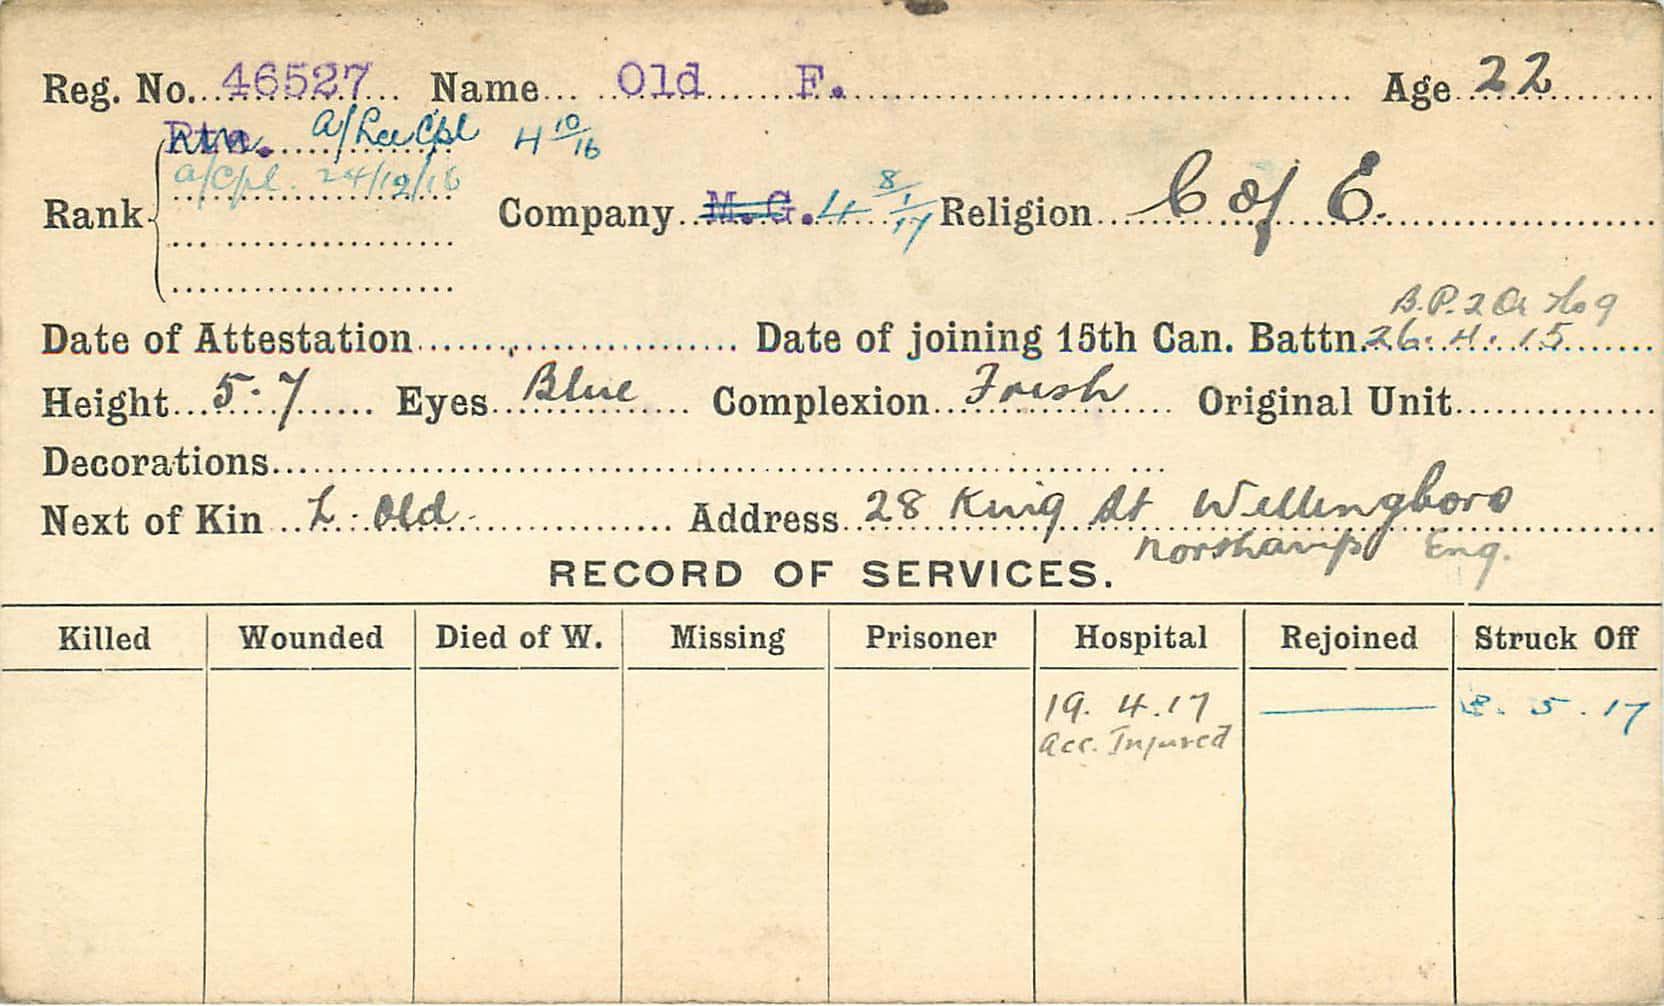 Reg. No. 46527 Name Old F. Age 22
Pte. a/Lce Cpl 4 10/16
a/Cpl. 24/12/16
Rank Company M.G. 4 8/1/17 Religion C of E.
B.P. 2 Or No 9
Date of Attestation Date of joining 15th Can. Battn. 26. 4. 15
Height 5.7 Eyes Blue Complexion Fresh Original Unit
Decorations
Next of Kin L. Old Address 28 King St Wellingboro
Northamp Eng.
RECORD OF SERVICES.
Killed Wounded Died of W. Missing Prisoner Hospital Rejoined Struck Off
19. 4. 17 5. 17
acc. Injured